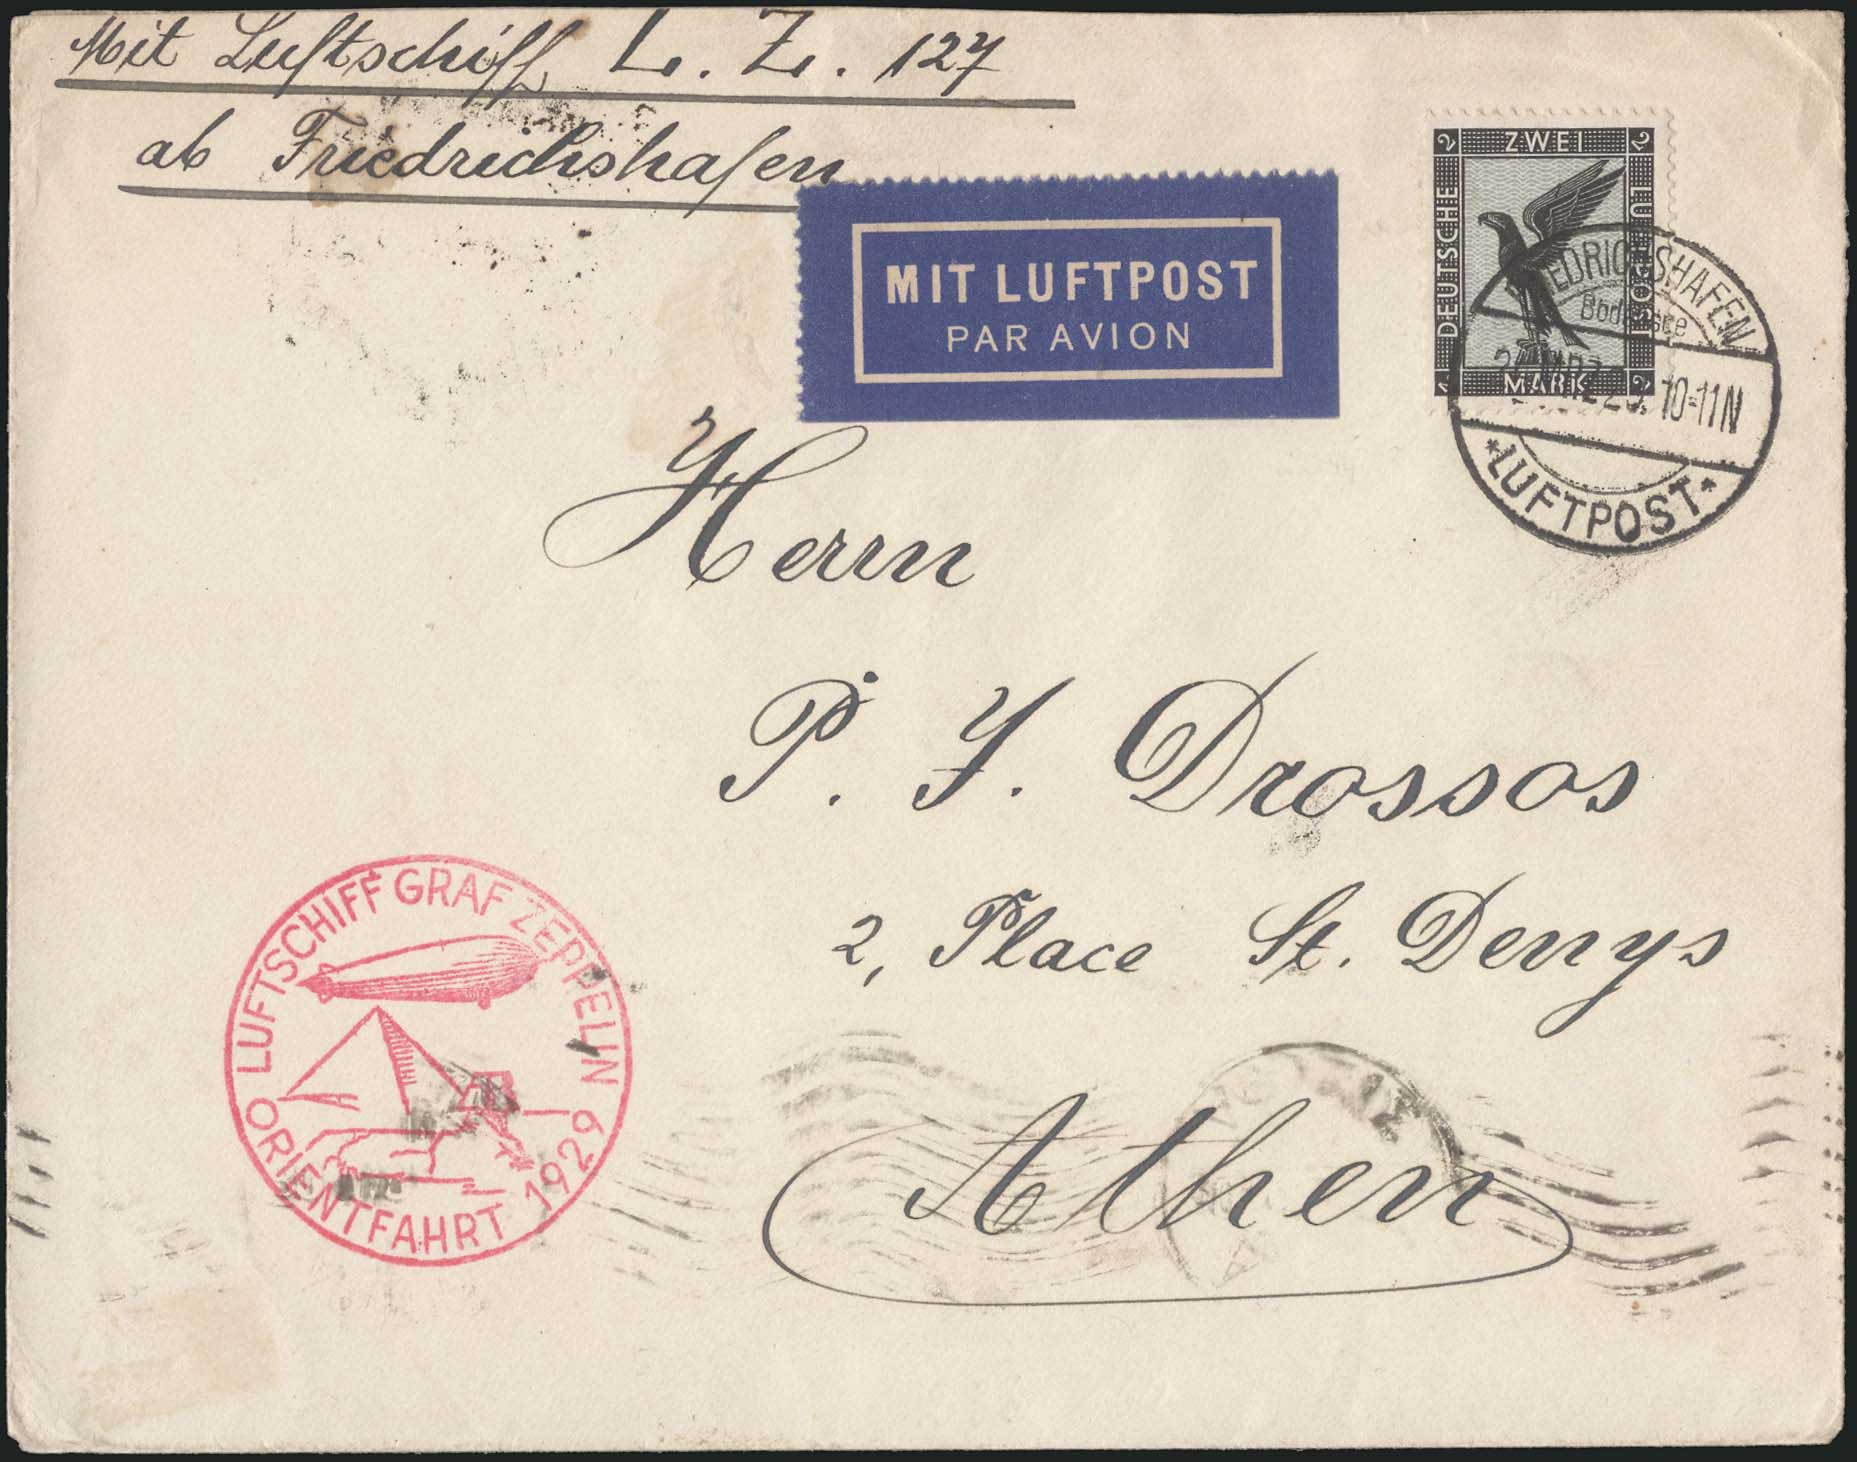 Mit Luftschiff L. Z. 127
ab Friedrichshafen
MIT LUFTPOST
PAR AVION
2 ZWEI 2
DEUTSCHE
LUFTPOST
MARK 2
FRIEDRICHSHAFEN
Bodensee
10-11N
*LUFTPOST*
Herrn
P. J. Drossos
2, Place St. Denys
Athen
LUFTSCHIFF GRAF ZEPPELIN
ORIENTFAHRT 1929